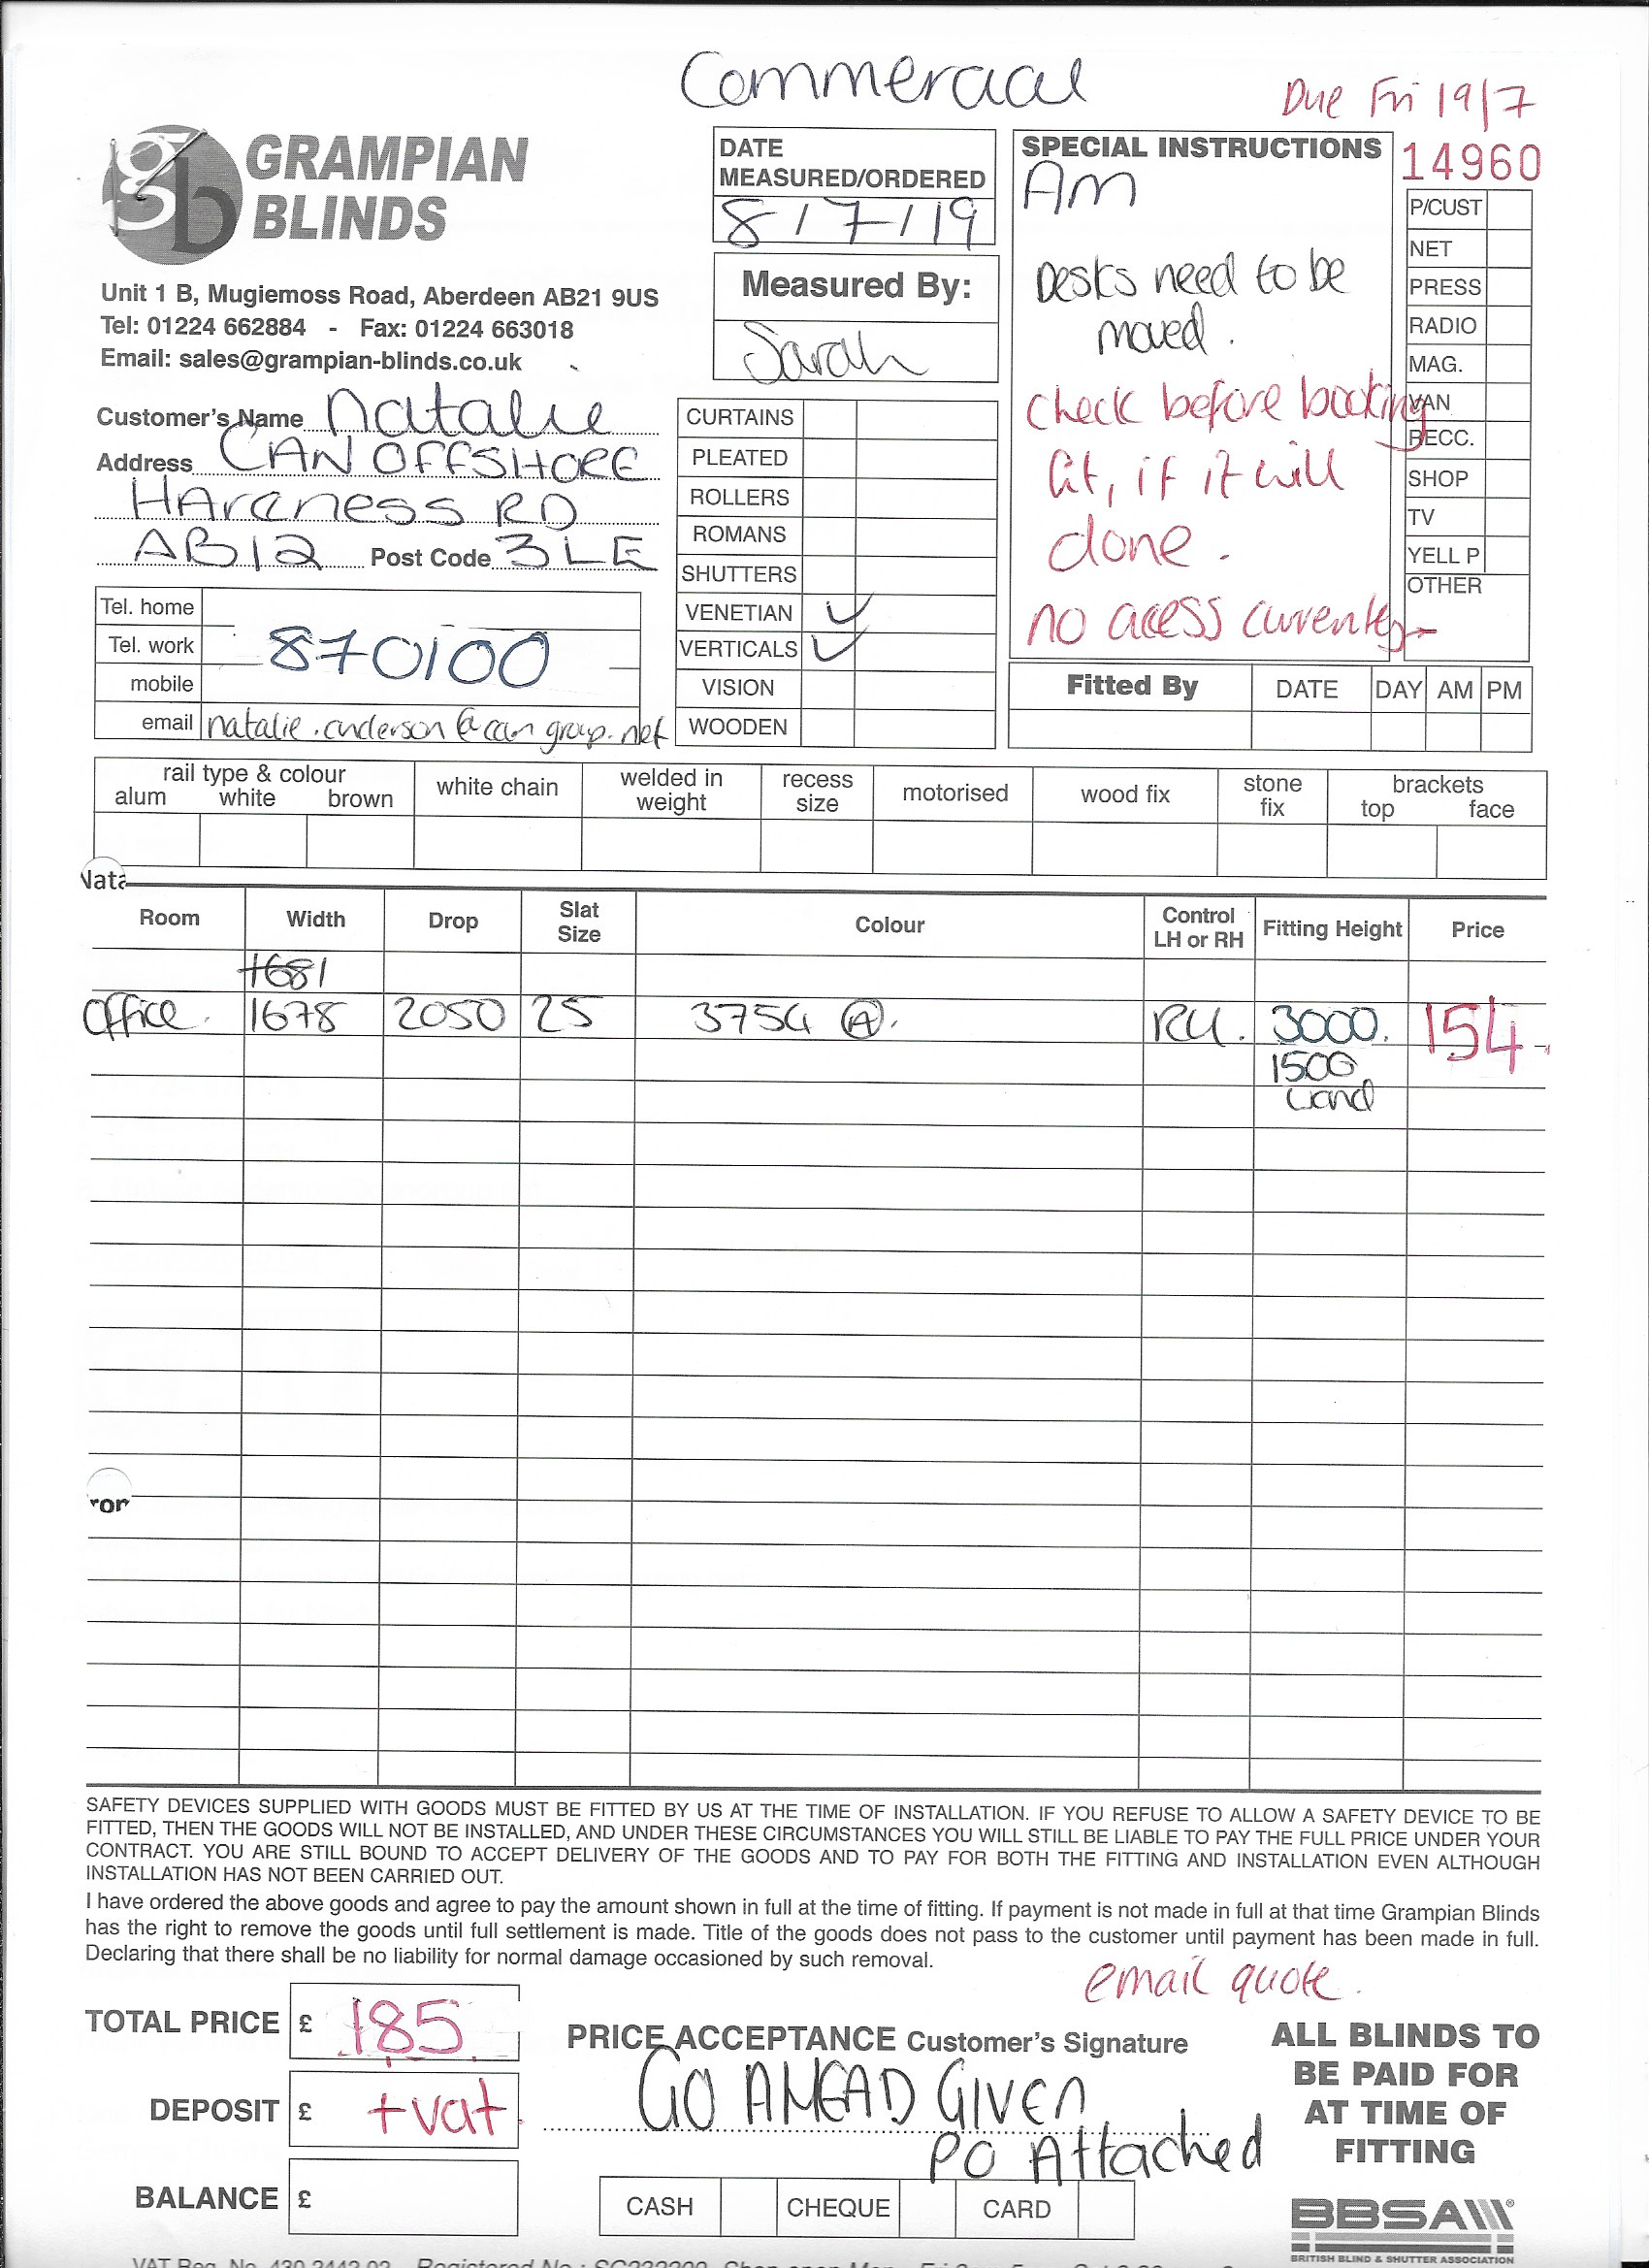 Commercial
Due Fri 19/7
GRAMPIAN
BLINDS
Unit 1 B, Mugiemoss Road, Aberdeen AB21 9US
Tel: 01224 662884 - Fax: 01224 663018
Email: sales@grampian-blinds.co.uk
DATE
MEASURED/ORDERED
8/7/19
Measured By:
Sarah
SPECIAL INSTRUCTIONS
AM
Desks need to be
moved.
check before booking
fit, if it will
done.
no acess currently
14960
P/CUST
NET
PRESS
RADIO
MAG.
VAN
RECC.
SHOP
TV
YELL P
OTHER
Customer's Name Natalie
Address CAN OFFSHORE
HArcness RD
AB12 Post Code 3LE
Tel. home
Tel. work 870100
mobile
email natalie.anderson@cangroup.net
CURTAINS
PLEATED
ROLLERS
ROMANS
SHUTTERS
VENETIAN ✓
VERTICALS ✓
VISION
WOODEN
Fitted By DATE DAY AM PM
rail type & colour
alum white brown
white chain
welded in
weight
recess
size
motorised
wood fix
stone
fix
brackets
top face
Nata
Room Width Drop Slat Size Colour Control LH or RH Fitting Height Price
1681
Office. 1678 2050 25 3754 Ⓐ. RH. 3000. 154
1500
wand
ror
SAFETY DEVICES SUPPLIED WITH GOODS MUST BE FITTED BY US AT THE TIME OF INSTALLATION. IF YOU REFUSE TO ALLOW A SAFETY DEVICE TO BE
FITTED, THEN THE GOODS WILL NOT BE INSTALLED, AND UNDER THESE CIRCUMSTANCES YOU WILL STILL BE LIABLE TO PAY THE FULL PRICE UNDER YOUR
CONTRACT. YOU ARE STILL BOUND TO ACCEPT DELIVERY OF THE GOODS AND TO PAY FOR BOTH THE FITTING AND INSTALLATION EVEN ALTHOUGH
INSTALLATION HAS NOT BEEN CARRIED OUT.
I have ordered the above goods and agree to pay the amount shown in full at the time of fitting. If payment is not made in full at that time Grampian Blinds
has the right to remove the goods until full settlement is made. Title of the goods does not pass to the customer until payment has been made in full.
Declaring that there shall be no liability for normal damage occasioned by such removal.
email quote.
TOTAL PRICE £ 185
DEPOSIT £ +vat
BALANCE £
PRICE ACCEPTANCE Customer's Signature
GO AHEAD GIVEN
PO Attached
CASH CHEQUE CARD
ALL BLINDS TO
BE PAID FOR
AT TIME OF
FITTING
BBSA
BRITISH BLIND & SHUTTER ASSOCIATION